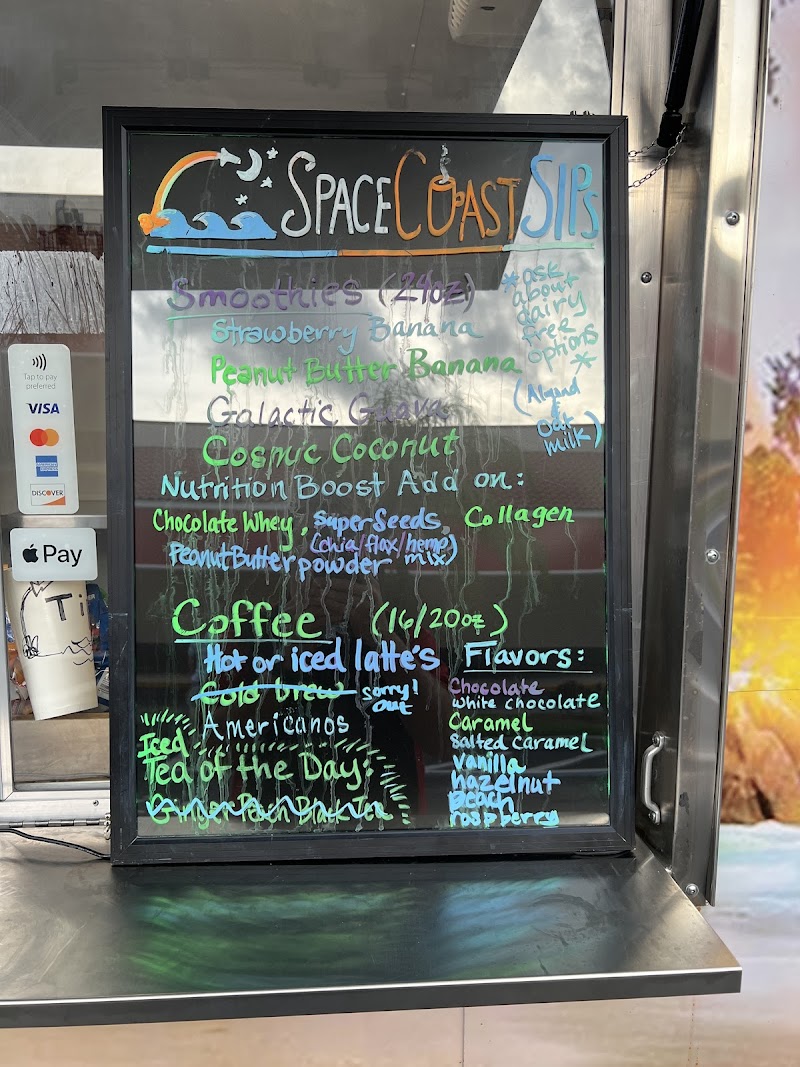 SPACE COAST SIPS
Smoothies (24oz)
*ask about dairy free options*
(Almond & Oat milk)
Strawberry Banana
Peanut Butter Banana
Galactic Guava
Cosmic Coconut
Nutrition Boost Add on:
Chocolate Whey, Super Seeds (chia/flax/hemp mix) Collagen
Peanut Butter powder
Coffee (16/20oz)
Hot or iced latte's
Cold brew sorry! out
Americanos
Iced
Tea of the Day:
Ginger Peach Black Tea
Flavors:
Chocolate
white chocolate
Caramel
Salted caramel
vanilla
hazelnut
peach
raspberry
Tap to pay
preferred
VISA
DISCOVER
Pay
Ti